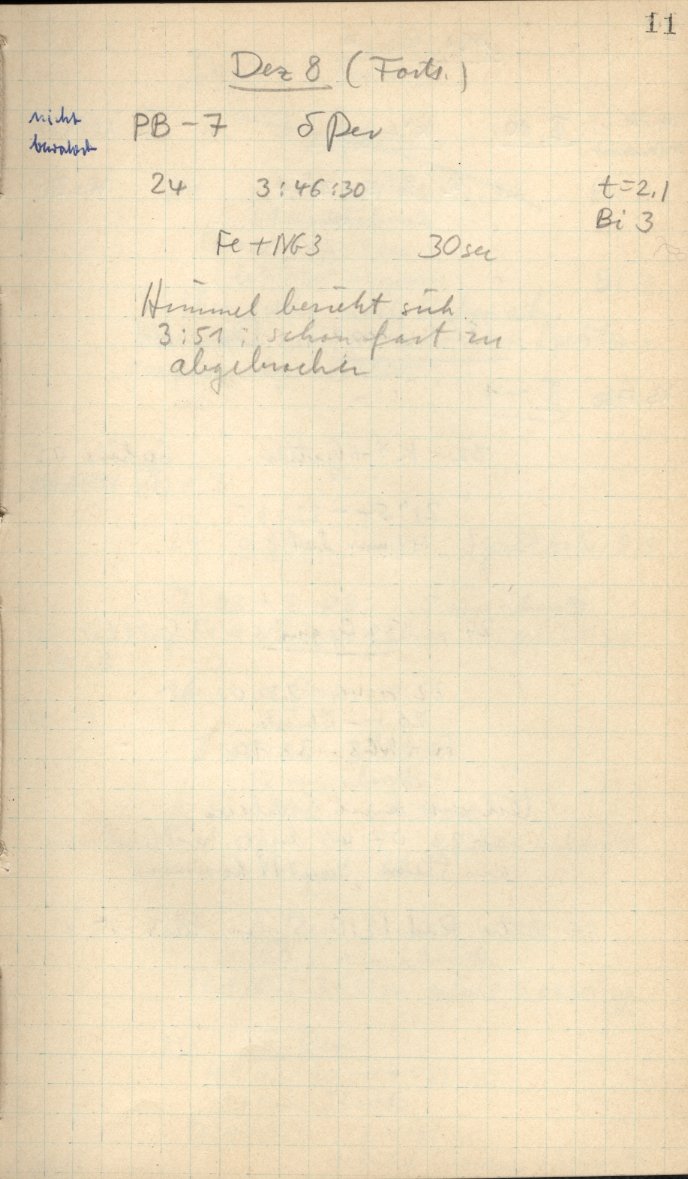 11
Dez 8 (Forts.)
nicht
PB-7 δ Per
24 3:46:30 t=2,1
Bi 3
Fe + NG3 30 sec
Himmel bezieht sich
3:51 : schon fast zu
abgebrochen